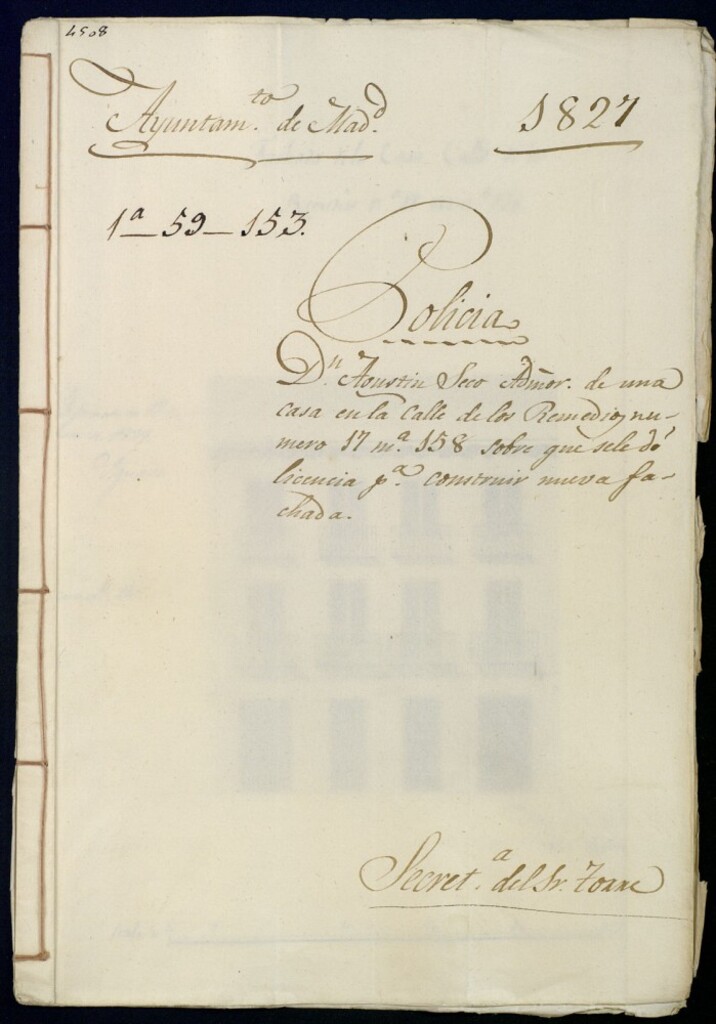 4508
Ayuntam.to de Mad.d
1827
1a–59–153.
Policia
D.n Agustin Seco Admõr. de una
casa en la Calle de los Remedios nu-
mero 17 m.a 158 sobre que sele dé
licencia p.a construir nueva fa-
chada.
Secret.a del Sr. Torre